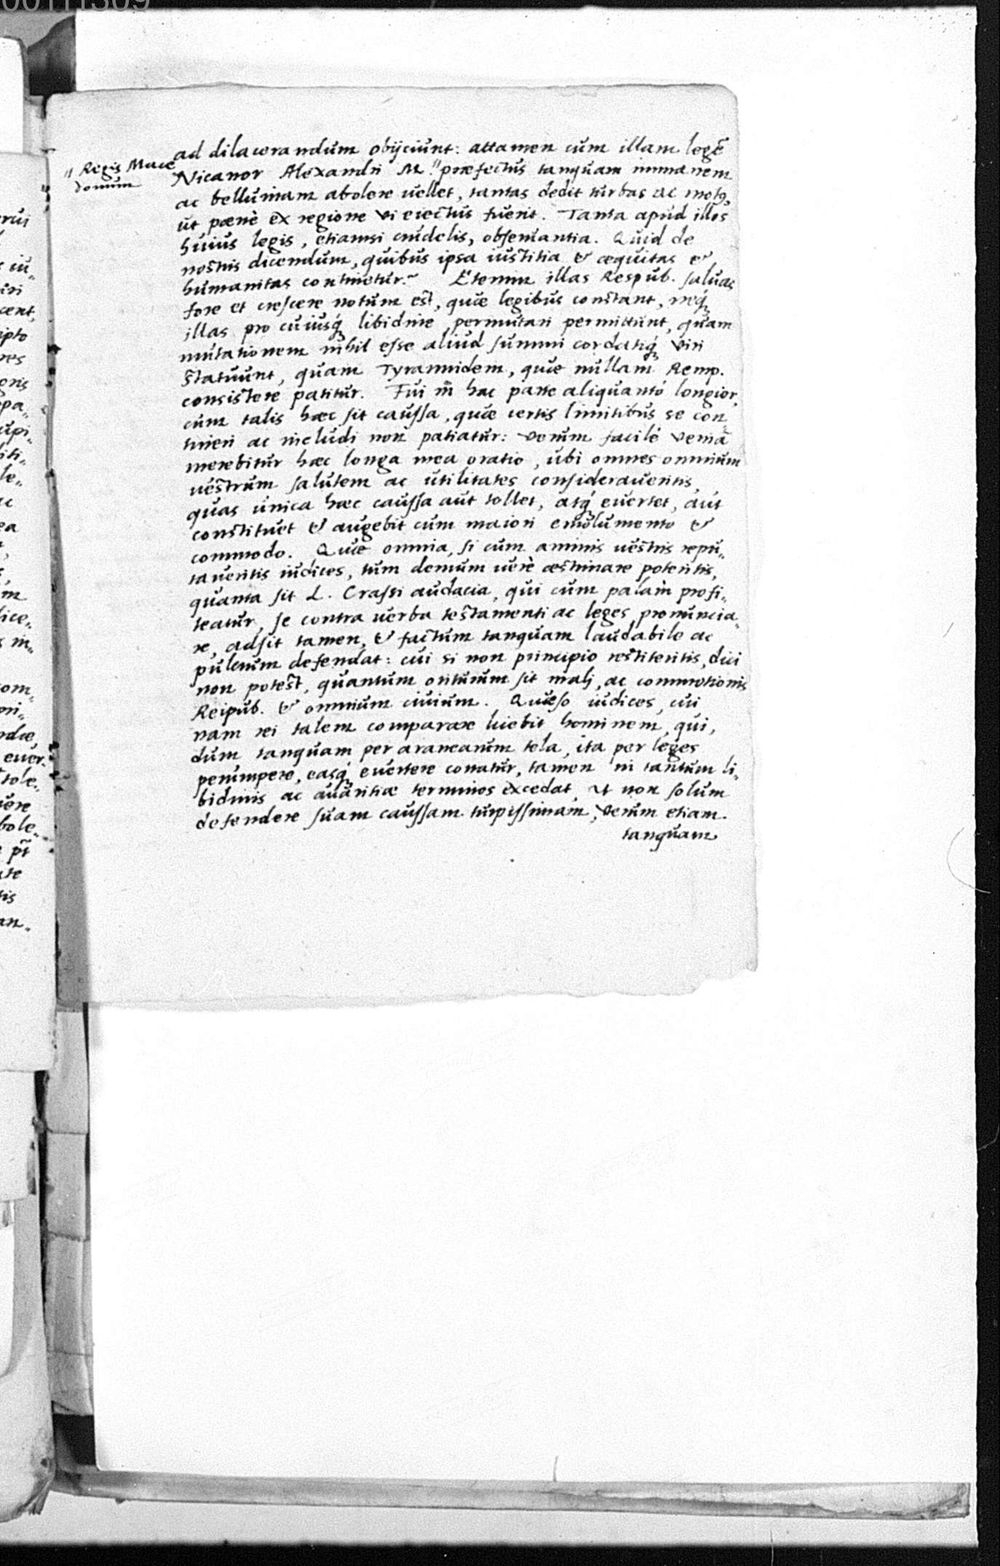 00111309
ad dilacerandum obijciunt: attamen cum illam legẽ
Nicanor Alexandri M." præfectus tanquam immanem
" Regis Mace
donum
ac belluinam abolere uellet, tantas dedit turbas ac motus,
ut pœnè ex regione vi eiectus fuerit. Tanta apud illos
huius legis, etiamsi crudelis, obseruantia. Quid de
nostris dicendum, quibus ipsa iustitia & æquitas &
humanitas continetur? Etenim illas Respub. saluas
fore et crescere notum est, quæ legibus constant, neq́
illas pro cuiusq́ libidine permutari permittunt, quam
mutationem nihil esse aliud summi cordatiq́ viri
statuunt, quam Tyrannidem, quæ nullam Remp.
consistere patitur. Fui in hac parte aliquantò longior,
cum talis hæc sit caussa, quæ certis limitibus se con
tineri ac includi non patiatur: verum facilè veniã
merebitur hæc longa mea oratio, ubi omnes omnium
uestrum salutem ac utilitates consideraueritis,
quas unica hæc caussa aut tollet, atq́ euertet, aut
constituet & augebit cum maiori emolumento &
commodo. Quæ omnia, si cum animis uestris repu„
taueritis iudices, tum demum uerè æstimare poteritis,
quanta sit L. Crassi audacia, qui cum palàm profi„
teatur, se contra uerba testamenti ac leges pronuncia„
re, adsit tamen, & factum tanquam laudabile ac
pulcrum defendat: cui si non principio restiteritis, dici
non potest, quantum oriturum sit mali, ac commotionis
Reipub. & omnium ciuium. Quæso iudices, cui
nam rei talem comparare licebit hominem, qui,
dum tanquam per aranearum tela, ita per leges
perrumpere, easq́ euertere conatur, tamen in tantum li„
bidinis ac auaritiæ terminos excedat, ut non solum
defendere suam caussam turpissimam, verum etiam
tanquam